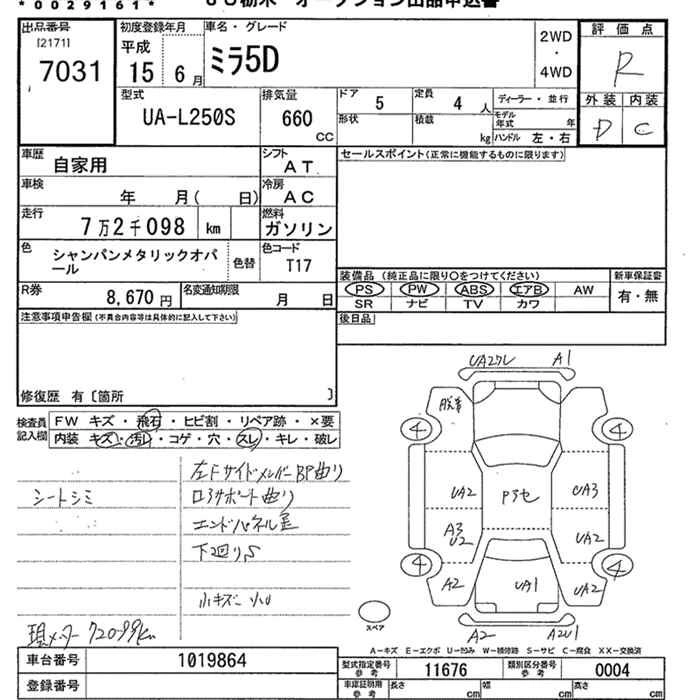 *0029161*
出品番号
[2171]
7031
初度登録年月
平成
15 6月
車名・グレード
ミラ5D
2WD
・
4WD
評価点
R
外装 内装
D C
型式
UA-L250S
排気量
660
CC
ドア
5
定員
4 人
形状
積載
kg
ディーラー・並行
モデル年式 年
ハンドル 左・右
車歴
自家用
シフト
AT
車検
年 月( 日)
冷房
AC
走行
7万2千098 km
燃料
ガソリン
色
シャンパンメタリックオパール
色替
色コード
T17
R券
8,670 円
名変通知期限
月 日
セールスポイント(正常に機能するものに限ります)
装備品 (純正品に限り○をつけてください)
PS PW ABS エアB AW
SR ナビ TV カワ
新車保証書
有・無
後日品
注意事項申告欄(不具合内容等は具体的に記入して下さい)
修復歴 有〔箇所 〕
検査員記入欄
FW キズ・飛石・ヒビ割・リペア跡・×要
内装 キズ・汚レ・コゲ・穴・スレ・キレ・破レ
シートシミ
左Fサイドメンバー BP曲り
ロアサポート曲り
下廻りS
小キズ 小U
現メーター 72099km
UA2ワレ A1
4 4
UA2 UA3
A3
U2
UA2
4 4
A2 UA1 UA2
A2 A2U1
スペア
A-キズ E-エクボ U-凹み W-補修跡 S-サビ C-腐食 XX-交換済
車台番号
1019864
型式指定番号 参考
11676
類別区分番号 参考
0004
登録番号
車庫証明用 参考
長さ cm 幅 cm 高さ cm